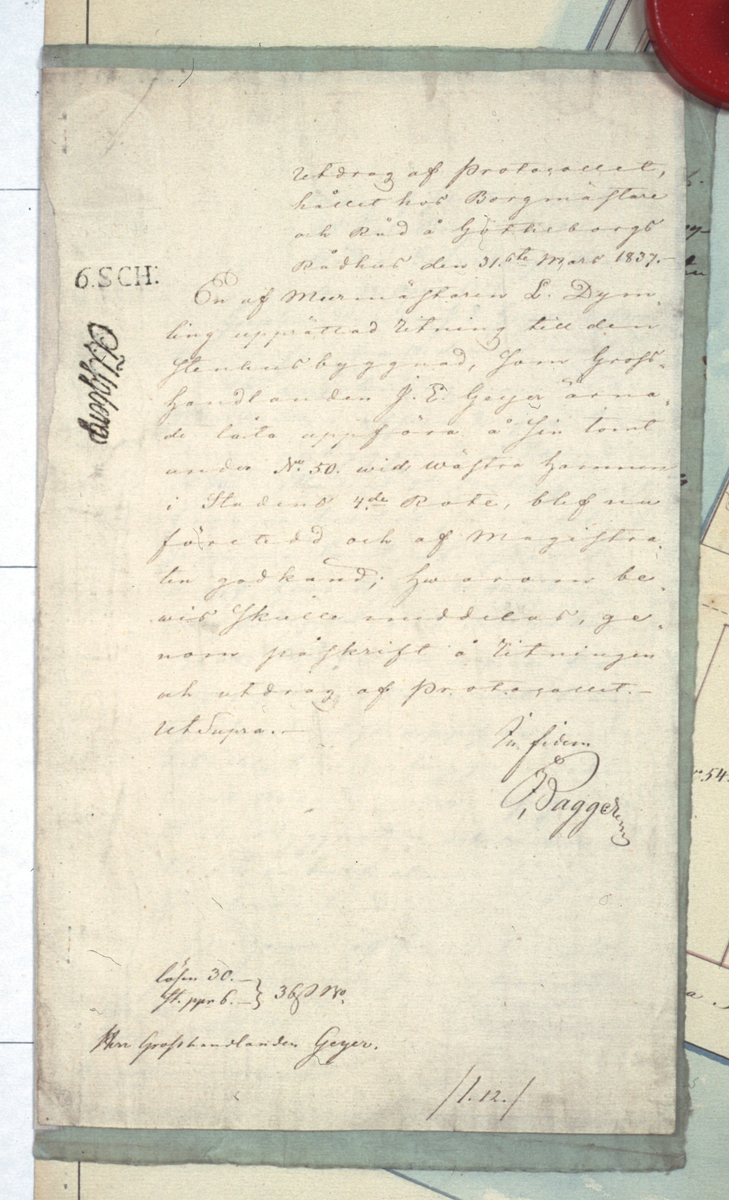 Utdrag af Protocollet,
hållet hos Borgmästare
och Råd å Götheborgs
Rådhus den 31.ste Mars 1837.-
6.SCH:
En af Murmästaren L. Dym-
ling upprättad ritning till den
stenhusbyggnad, som Gross-
handlanden J. E. Geyer ärna-
de låta uppföra å sin tomt
under No. 50. wid Wästra Hamnen
i Stadens 4.de Rote, blef nu
företedd och af Magistra-
ten godkänd; hwarom be-
wis skulle meddelas, ge-
nom påskrift å ritningen
och utdrag af Protocollet.-
Ut Supra.-
In fidem
Bagge
lösen 30.-
st. ppr 6.- } 36 ß Bo.
Herr Grosshandlanden Geyer.
/1.12./
54.